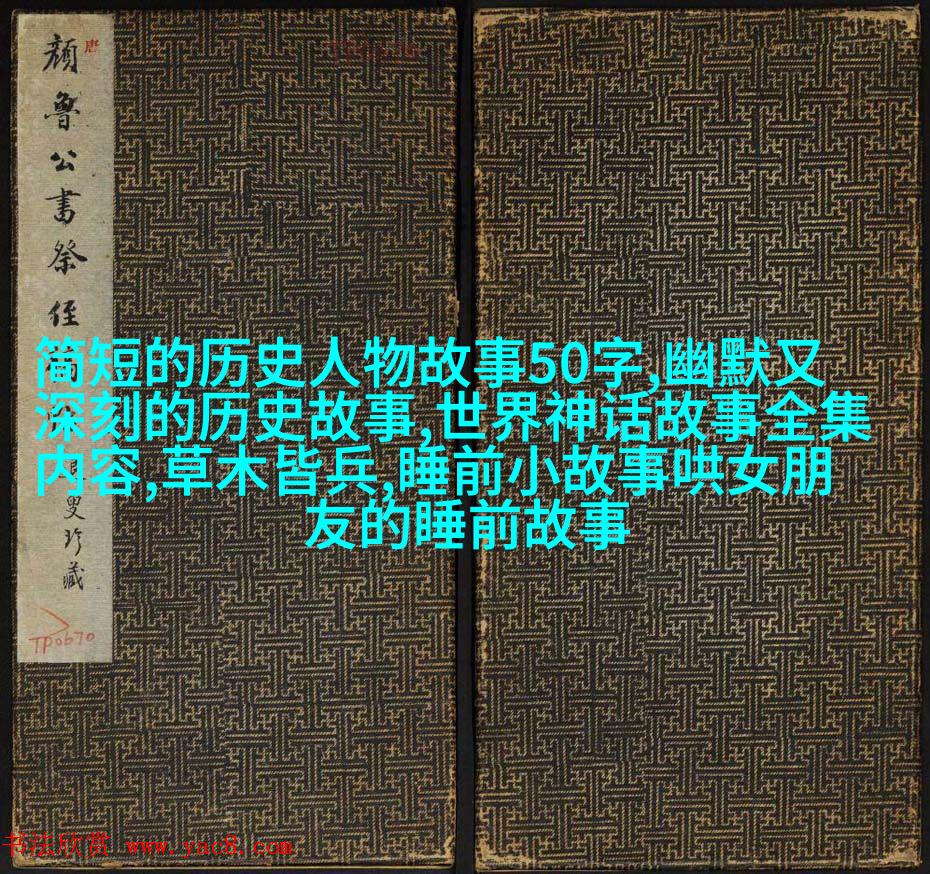 唐
颜鲁公书祭侄
叟珍藏
TP0670
TP0670
简短的历史人物故事50字,幽默又
深刻的历史故事,世界神话故事全集
内容,草木皆兵,睡前小故事哄女朋
友的睡前故事
书法欣赏 www.yac8.com